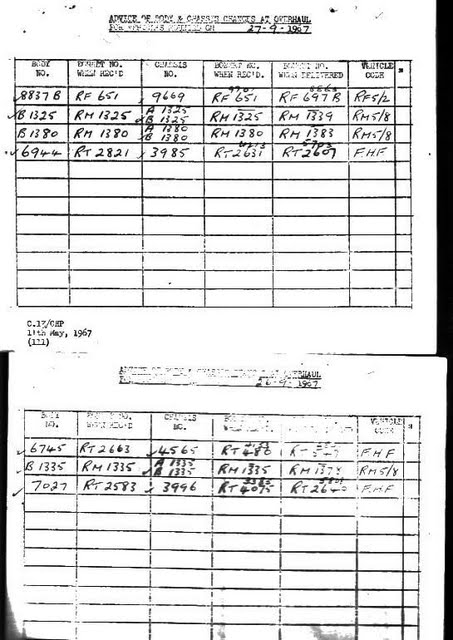 ADVICE OF BODY & CHASSIS CHANGES AT OVERHAUL
FOR VEHICLES 27-9-1967
BODY NO. BONNET NO. WHEN REC'D CHASSIS NO. BONNET NO. WHEN REC'D. BONNET NO. WHEN DELIVERED VEHICLE CODE
✓8837B RF 651 9669 RF 651 RF 697B RF5/2
✓B1325 RM 1325 A 1325 ✓B 1325 RM 1325 RM 1339 RM5/8
B1380 RM 1380 A 1380 ✓B 1380 RM 1380 RM 1383 RM5/8
✓6944 RT 2821 ✓3985 RT 2631 RT 2607 F.H.F
C.17/CHP
11th May, 1967
(111)
OVERHAUL
26-9-1967
BODY NO. BONNET NO. WHEN REC'D CHASSIS NO. VEHICLE CODE
✓6745 RT 2663 ✓4565 RT 480 F.H.F
✓B 1335 RM 1335 A 1335 ✓B 1335 RM 1335 RM 1378 RM5/8
✓7027 RT 2583 ✓3996 RT 4095 F.H.F